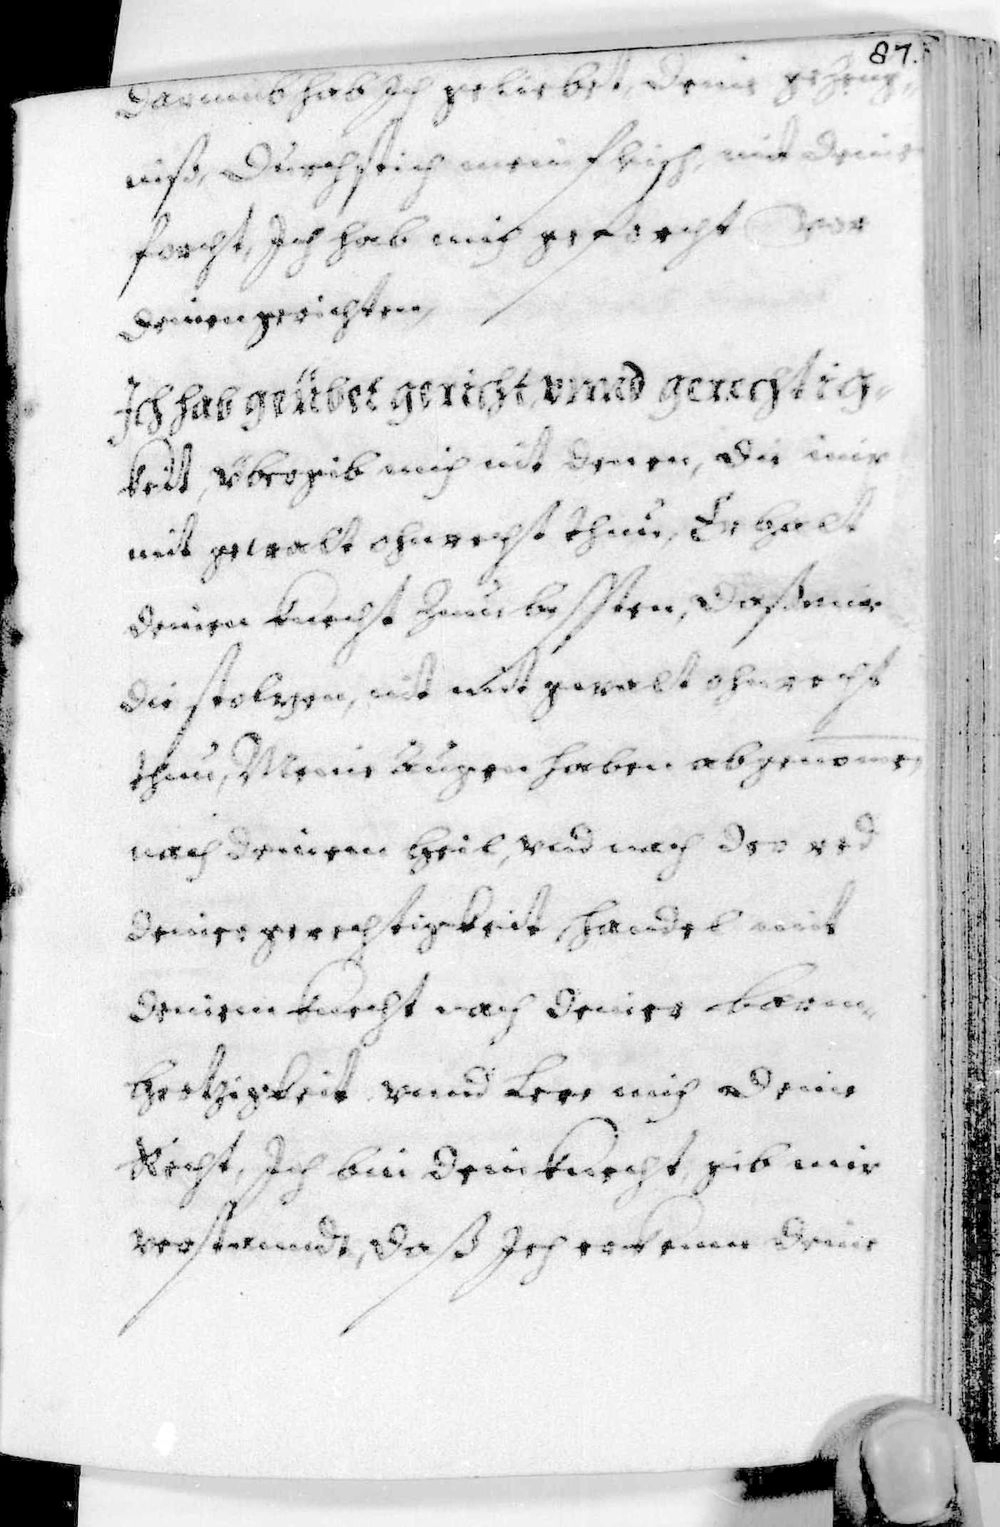 87.
Darumb hab Ich geliebet, deine gezeug-
niß, Durchstich mein fleisch, mit deiner
forcht, Ich hab mich geforcht vor
deinen gerichten,
Ich hab geübet gericht, vnnd gerechtig-
keit, übergib mich nit denen, die mir
mit gewalt ohnrecht thun, Erhalt
deinen knecht zum besten, daß mir
die stoltzen, nit mit gewalt ohnrecht
thun, Meine augen haben abgenome,
nach deinem heil, vnd nach der red
deiner gerechtigkeit, handel mit
deinem knecht nach deiner barm-
hertzigkeit vnnd lere mich deine
Recht, Ich bin dein knecht, gib mir
verstanndt, daß Ich erkenne deine